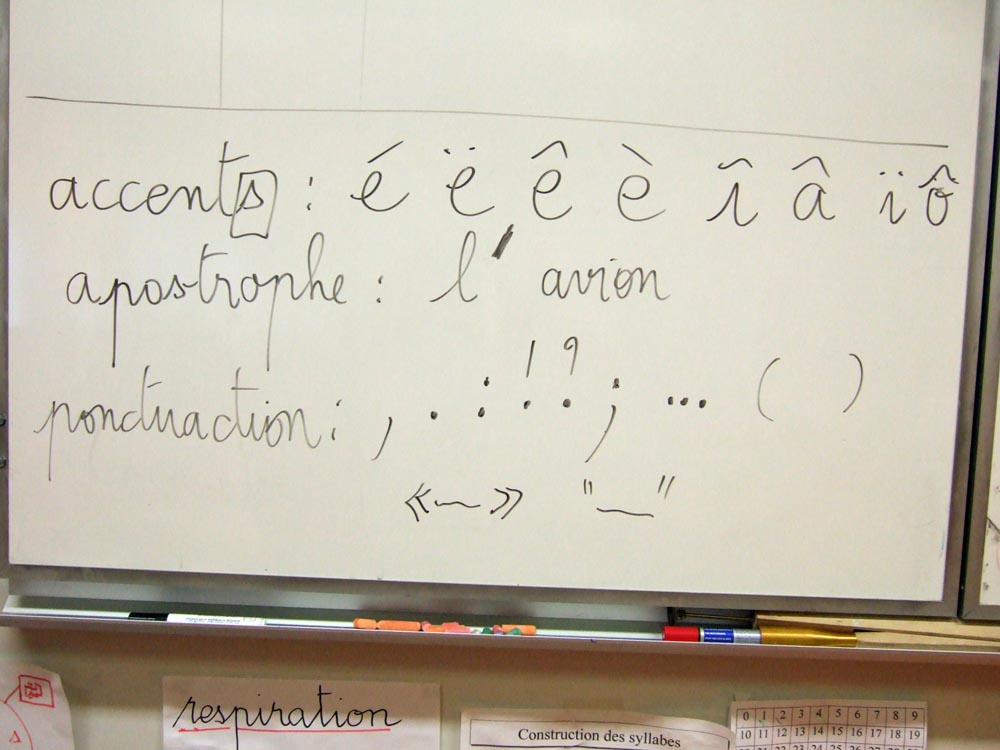 accents : é ë ê è î â ï ô
apostrophe : l' avion
ponctuaction : , . : ! ? ; ... ( )
« — » " — "
respiration
Construction des syllabes
0 1 2 3 4 5 6 7 8 9
10 11 12 13 14 15 16 17 18 19